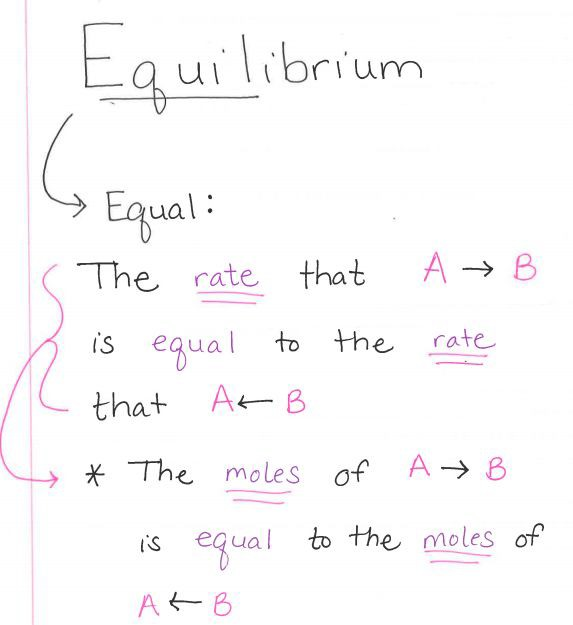 Equilibrium
Equal:
The rate that A → B
is equal to the rate
that A ← B
* The moles of A → B
is equal to the moles of
A ← B